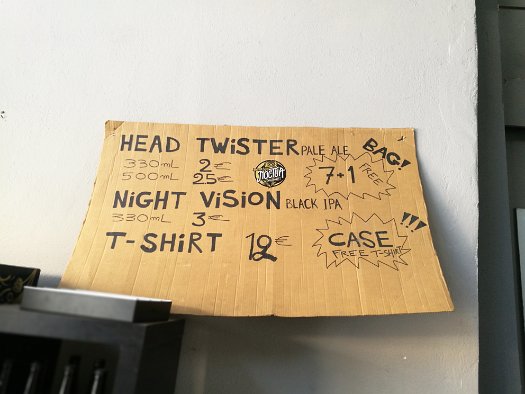 HEAD TWiSTER PALE ALE BAG!
330mL 2€
500mL 2.5€ 7+1 FREE
NiGHT ViSiON BLACK IPA
330mL 3€
T-SHiRT 12€ CASE !!!
FREE T-SHIRT